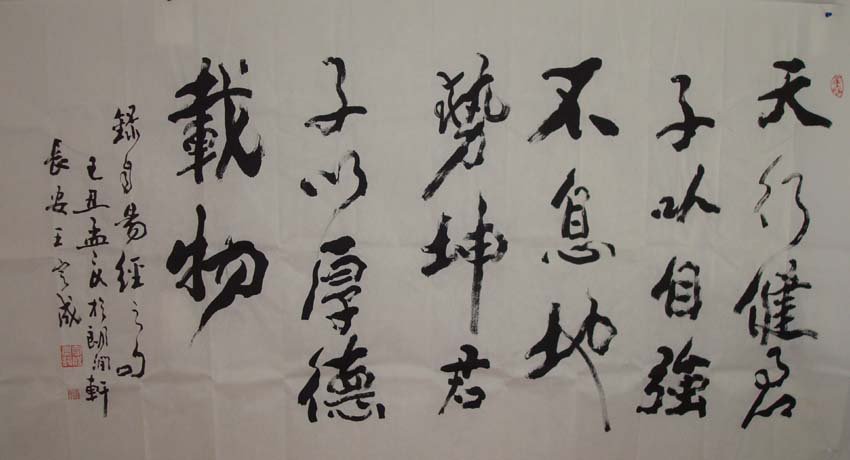 天行健君
子以自強
不息地
勢坤君
子以厚德
載物
錄自易經之句
丑孟於朗潤軒
長安王成